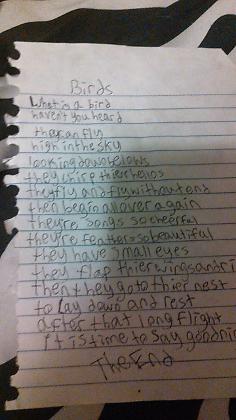 Birds
What is a bird
haven't you heard
they can fly
high in the sky
looking down belows
they chirp thier hellos
they fly and fly without end
then begin all over again
they're songs so cheerful
they're feathers so beautiful
they have small eyes
they flap thier wings and ri
then they go to thier nest
to lay down and rest
after that long flight
It is time to say goodni
The End